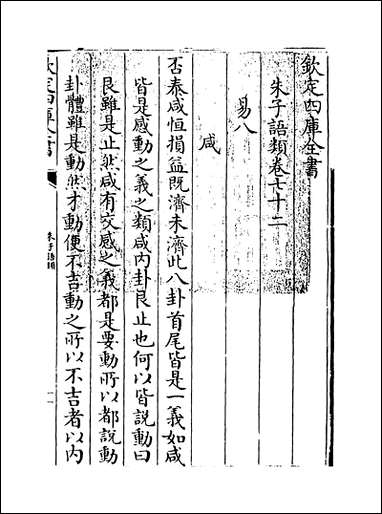 欽定四庫全書
朱子語類卷七十二
易八
咸
否泰咸恒損益既濟未濟此八卦首尾皆是一義如咸
皆是感動之義之類咸内卦艮止也何以皆説動曰
艮雖是止然咸有交感之義都是要動所以都説動
卦體雖是動然才動便不吉動之所以不吉者以内
欽定四庫全書
朱子語類
一